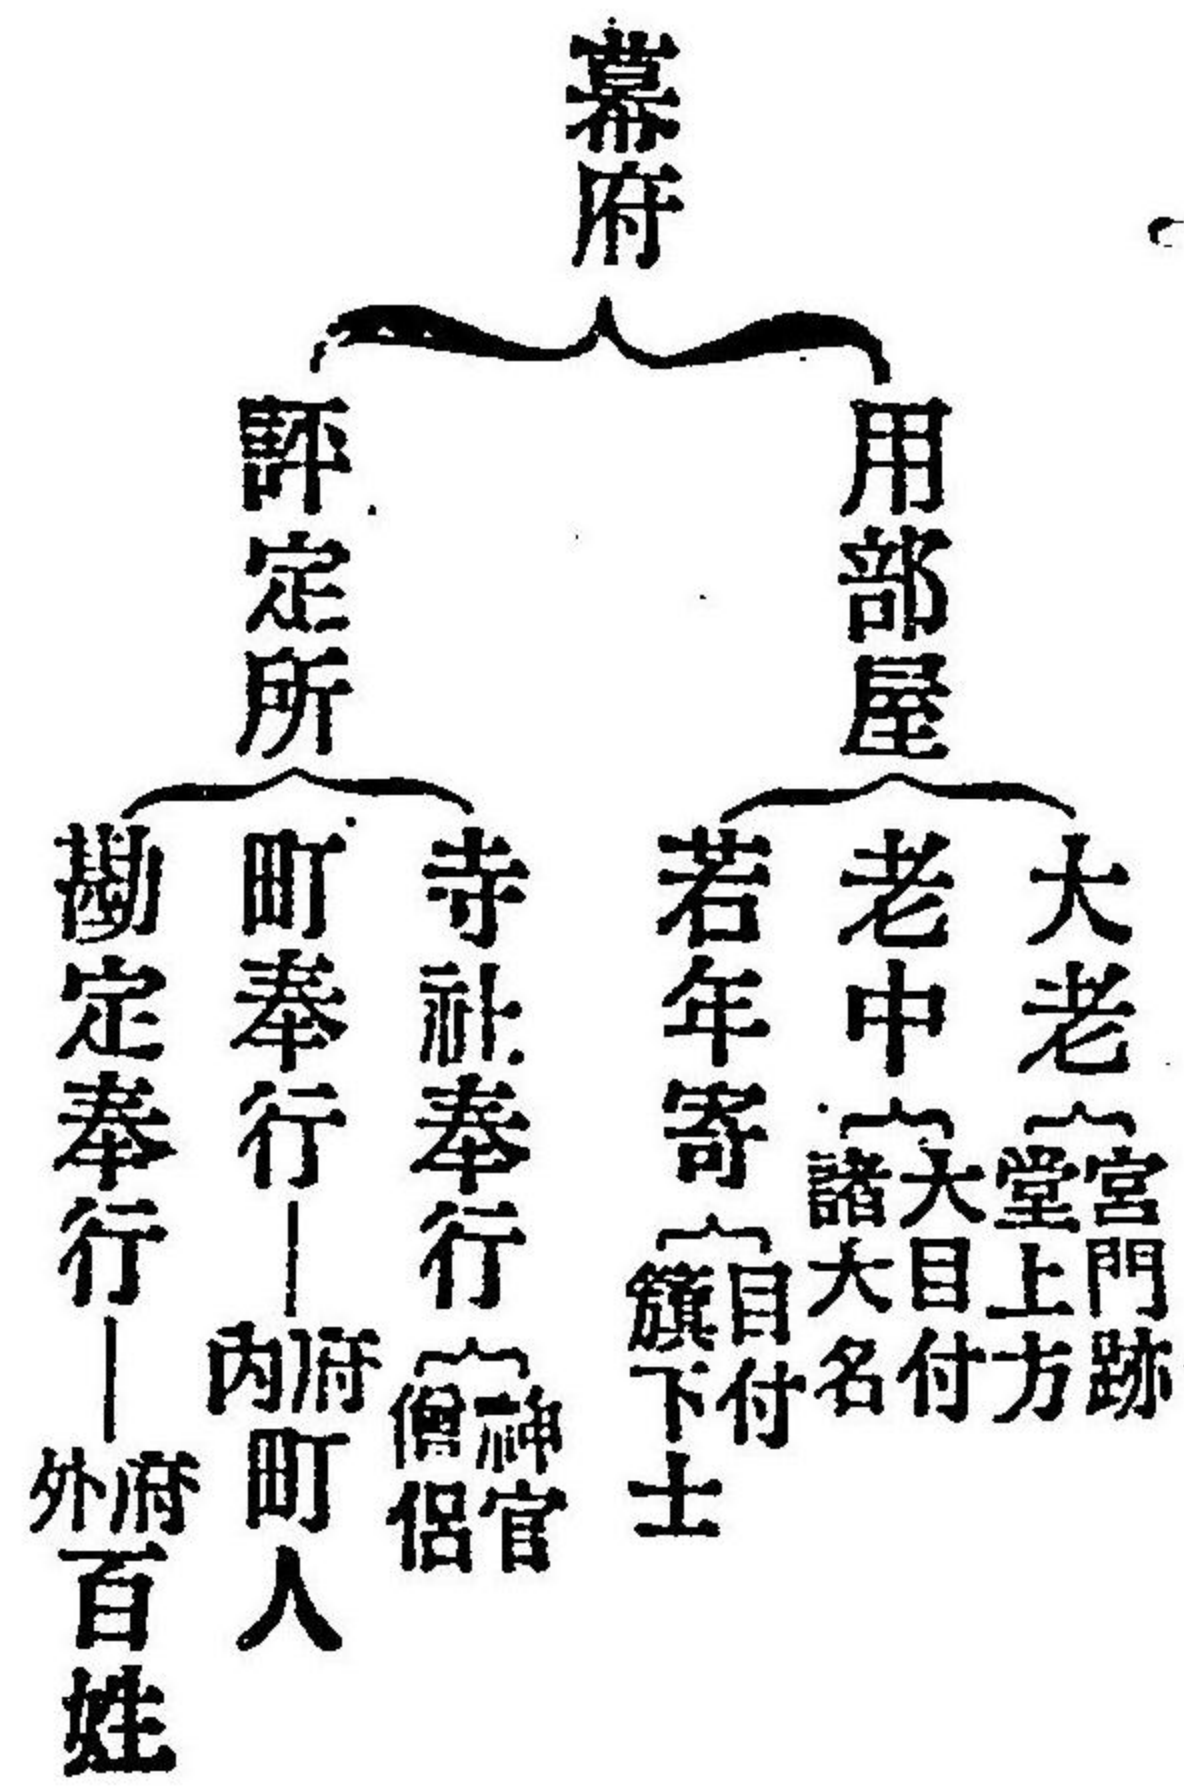 幕府
用部屋
大老
宮門跡
堂上方
老中
大目付
諸大名
若年寄
目付
籏下士
評定所
寺社奉行
神官
僧侶
町奉行
府内
町人
勘定奉行
府外
百姓